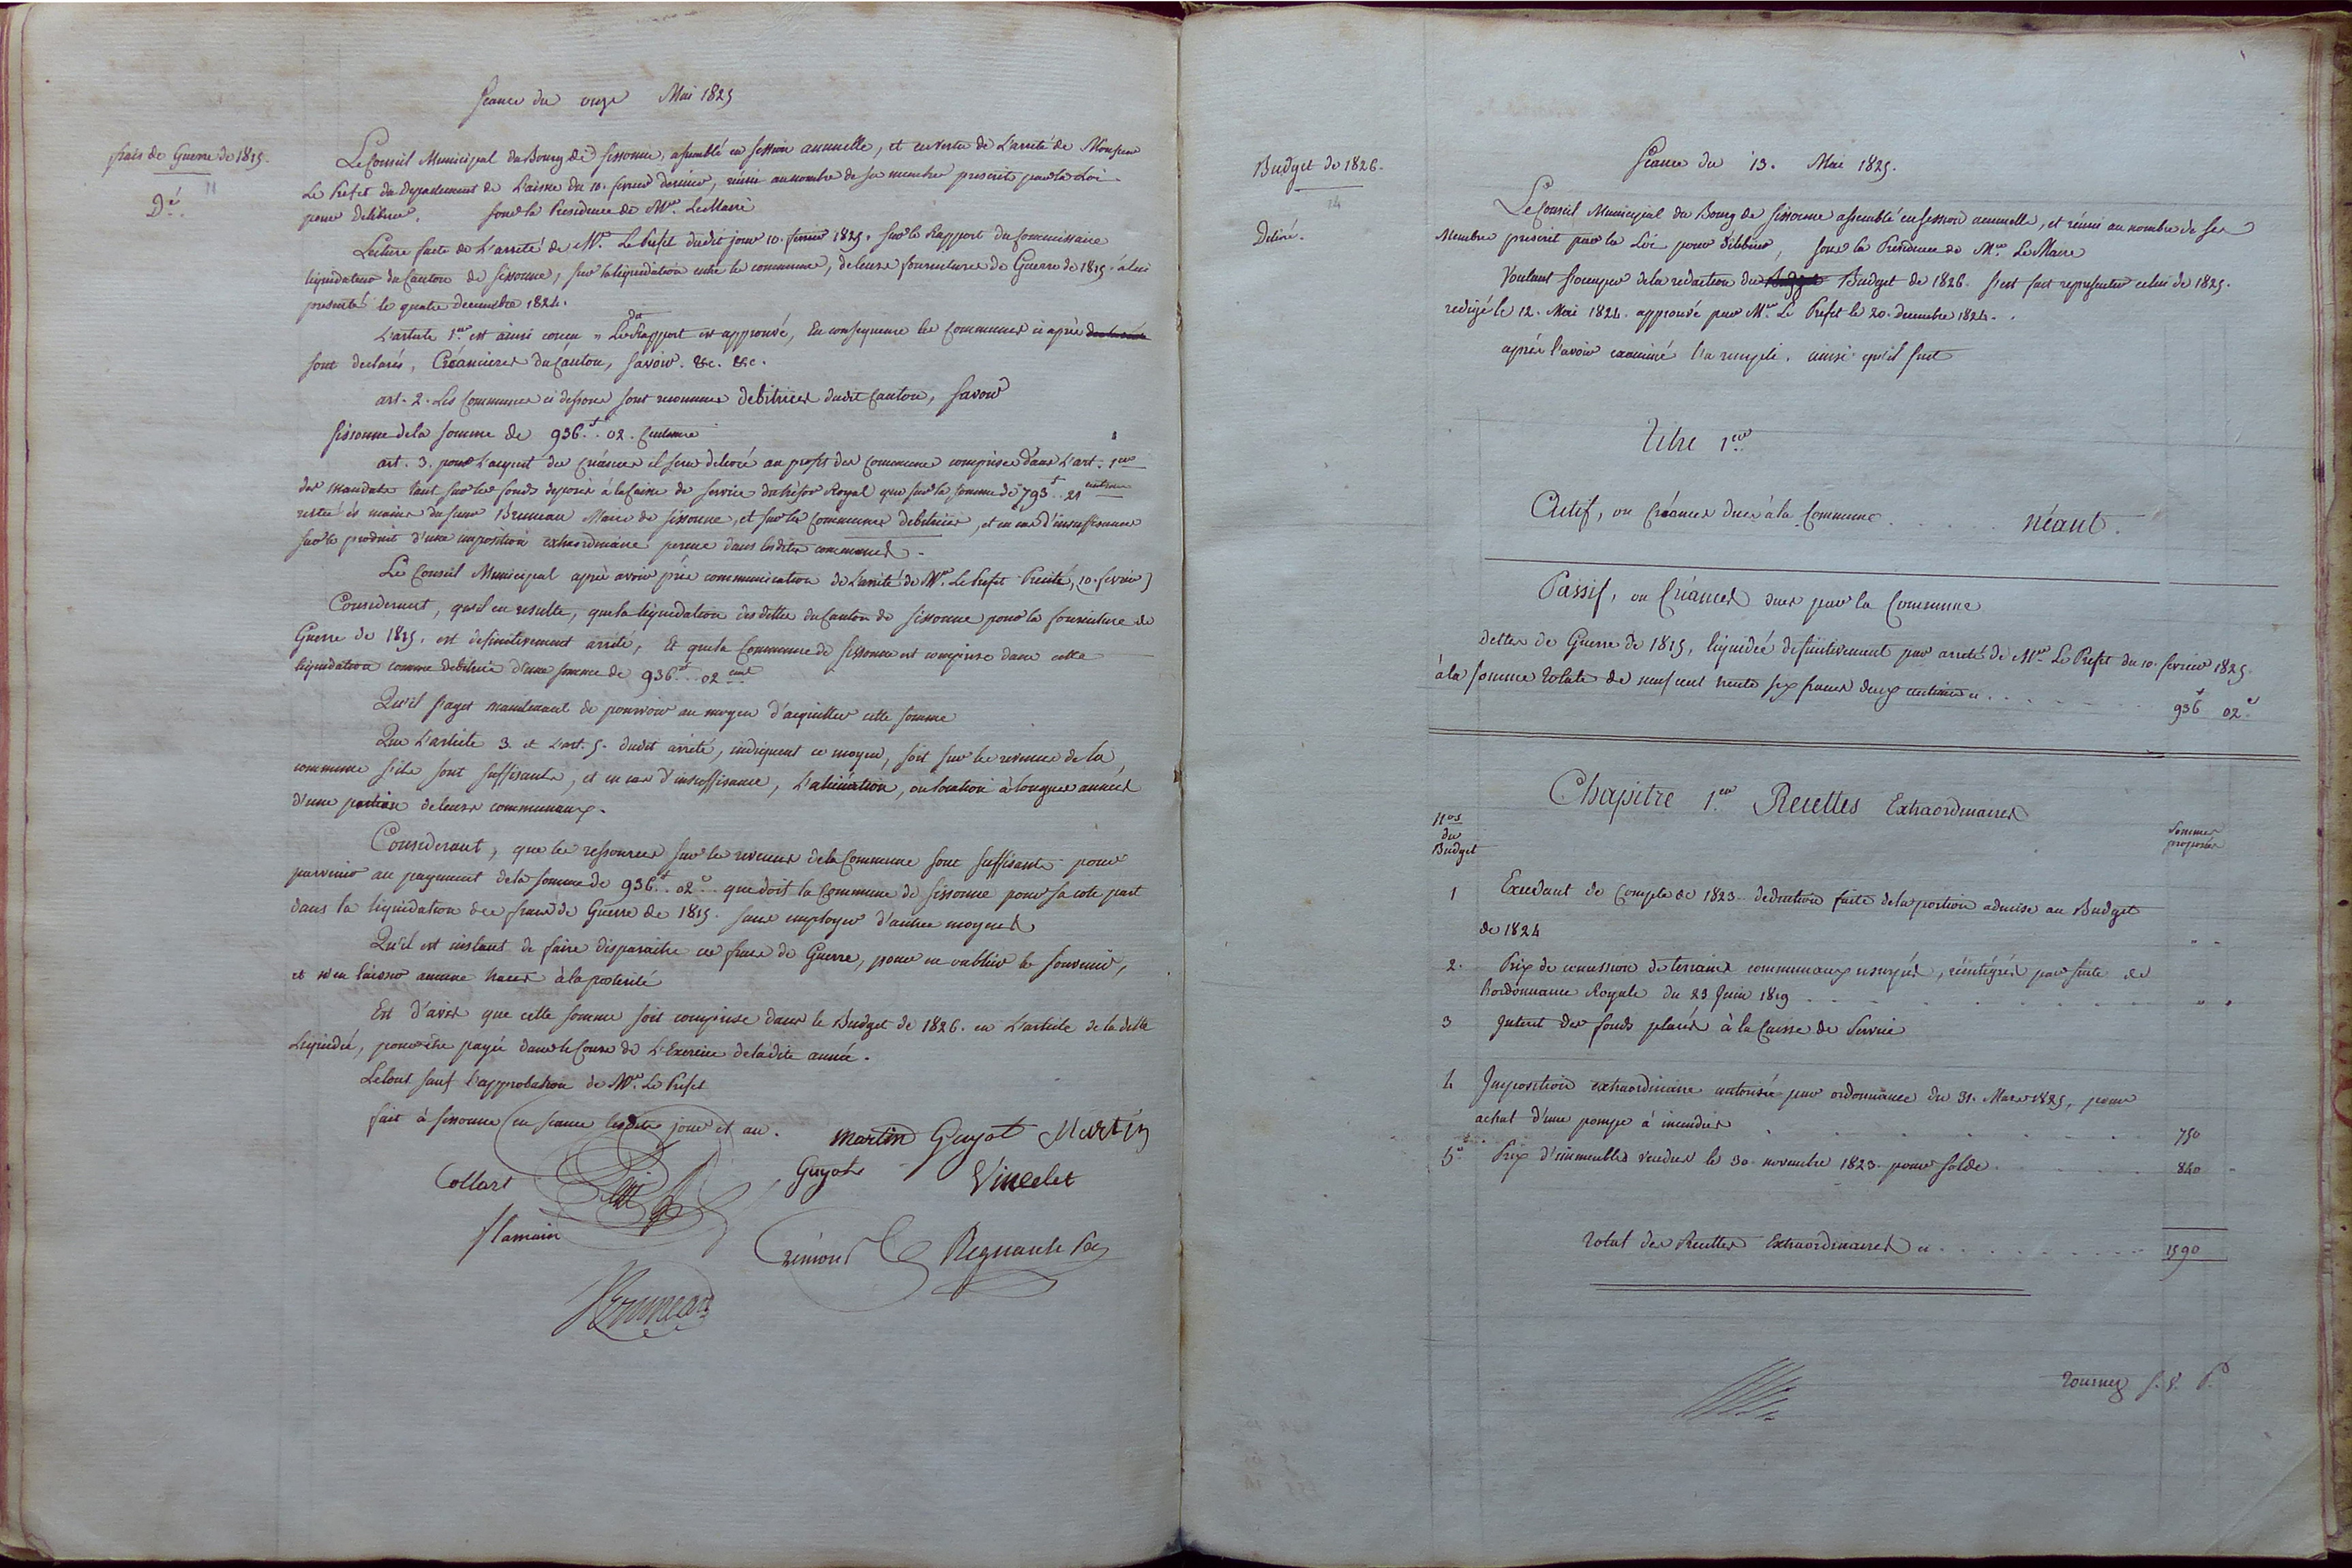 Séance du onze Mai 1825
frais de Guerre de 1815.
Dé.
Le Conseil Municipal du Bourg de Sissonne, assemblé en session annuelle, et en vertu de L'arrêté de Monsieur
Le Préfet du Département de L'aisne du 10. fevrier dernier, réuni au nombre de ses membres prescrits par la Loi
pour délibérer, sous la Présidence de Mr. Le Maire
Lecture faite de L'arrêté de Mr. Le Préfet dudit jour 10. fevrier 1825. sur le Rapport du Commissaire
liquidateur du Canton de Sissonne, sur la liquidation entre les communes, de leurs fournitures de Guerre de 1815. à lui
présenté le quatre decembre 1824.
L'article 1er. est ainsi conçu " Le dit Rapport est approuvé, En conséquence les Communes ci après
sont declarés, Créancieres du Canton, savoir. &c. &c.
art. 2. Les Communes ci dessous sont reconnues débitrices dudit Canton, savoir
Sissonne de la somme de 936.f 02. Centimes
art. 3. pour l'acquit des créances il sera delivré au profit des Communes comprises dans L'art. 1er
des mandats tant sur les fonds deposés à la Caisse de Service du trésor Royal que sur la somme de 793f. 21 centimes
restée ès mains du sieur Bruneau Maire de Sissonne, et sur les Communes debitrices, et en cas d'insuffisance
sur le produit d'une imposition extraordinaire percue dans lesdites communes.
Le Conseil Municipal après avoir pris communication de L'arrêté de Mr. Le Préfet Précité, 10. fevrier)
Considerant, qu'il en resulte, que la liquidation des dettes du Canton de Sissonne pour la fourniture de
Guerre de 1815. est definitivement arrêté, Et que la Commune de Sissonne est comprise dans cette
liquidation comme debitrice d'une somme de 936.f. 02 cent
Qu'il s'agit maintenant de pourvoir au moyen d'acquitter cette somme
Que L'article 3. et L'art. 5. dudit arrêté, indiquent ce moyen, soit sur les revenus de la
commune s'ils sont suffisants, et en cas d'insuffisance, L'aliénation, ou location à longues années
d'une portion de leurs communaux.
Considerant, que les ressources sur les revenus de la Commune sont suffisante pour
parvenir au payement de la somme de 936f. 02c. que doit la Commune de Sissonne pour sa cote part
dans la liquidation des frais de Guerre de 1815. sans employer d'autres moyens
Qu'il est instant de faire disparaitre ces frais de Guerre, pour en oublier le souvenir,
et n'en laisser aucune traces à la posterité
Est d'avis que cette somme soit comprise dans le Budget de 1826. en L'article de la dette
Liquidée, pour être payée dans le Cours de L'Exercice de ladite année.
Le tout sauf l'approbation de Mr. Le Préfet
fait à Sissonne en séance lesdits jour et an.
martin Guyot Martin
Collart Petit Guyot Vincelet
flamain Crémont Regnault
Bruneau
Budget de 1826.
24
Delivré.
Séance du 13. Mai 1825.
Le Conseil Municipal du Bourg de Sissonne assemblé en session annuelle, et réuni au nombre de ses
Membres prescrit par la Loi pour délibérer, sous la Présidence de Mr. Le Maire
Voulant s'occuper de la redaction du Budget Budget de 1826. s'est fait représenter celui de 1825.
redigé le 12. Mai 1824. approuvé par Mr. Le Préfet le 20. decembre 1824.
après l'avoir examiné l'a rempli, ainsi qu'il suit
Titre 1er
Actif, ou Créances dues à la Commune . . . . . néant.
Passif, ou Créances dues par la Commune
dettes de Guerre de 1815, liquidée definitivement par arrêté de Mr. Le Préfet du 10. fevrier 1825.
à la somme totale de neuf cent trente six francs deux centimes ci . . . . . . 936f 02c
Chapitre 1er. Recettes Extraordinaires
Nos du Budget
Sommes proposées
1 Excédant de Compte de 1823. deduction faite de la portion admise au Budget
de 1824 " "
2. Prix de concession de terrains communaux usurpés, réintégrés par suite de
L'ordonnance Royale du 23 Juin 1819 . . . . . . " "
3 Interet des fonds placés à la Caisse de Service
4 Imposition extraordinaire autorisée par ordonnance du 31. Mars 1825, pour
achat d'une pompe à incendies . . . . . . 750
5e. Prix d'immeubles vendus le 30. novembre 1823. pour solde . . . . . 840
Total des Recettes Extraordinaires ci . . . . . . 1590
Tournez S. V. P.